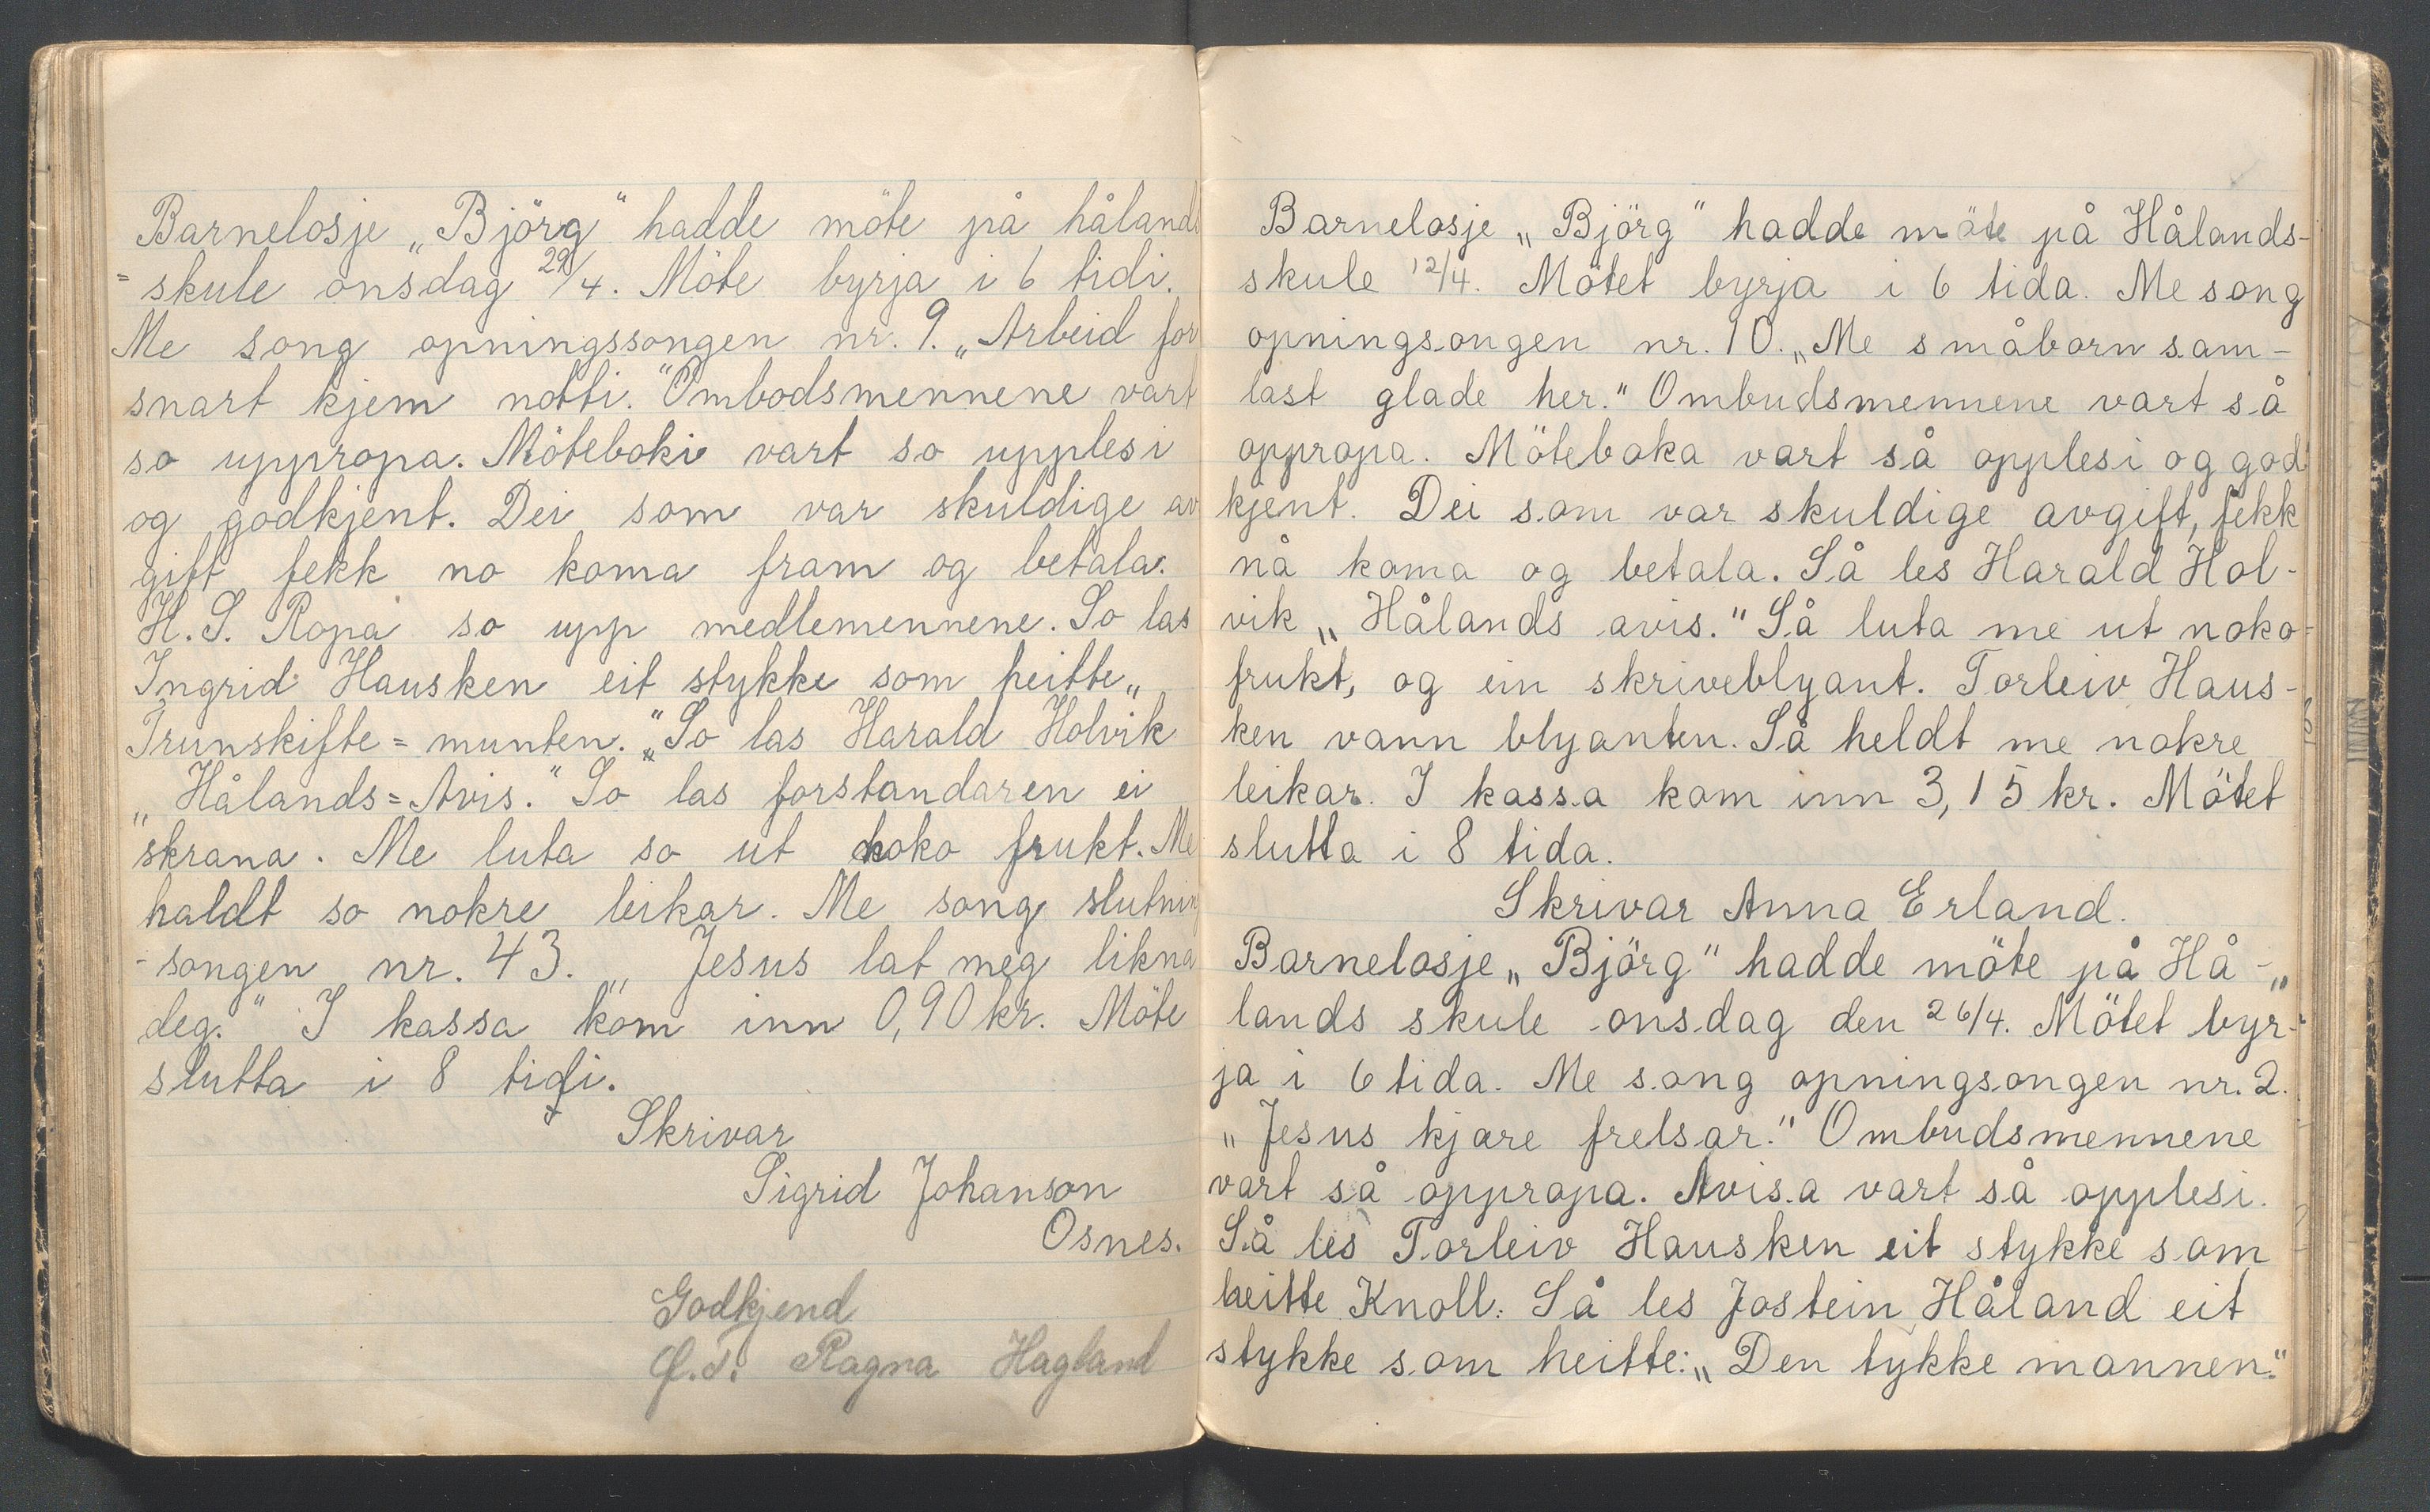 Barnelosje „Björg" hadde möte på hålands
=skule onsdag 29/4. Möte byrja i 6 tidi.
Me song opningssongen nr. 9. „Arbeid for
snart kjem notti." Ombodsmennene vart
so uppropa. Möteboki vart so upplesi
og godkjent. Dei som var skuldige av
gift fekk no koma fram og betala.
H. S. Ropa so upp medlemennene. So las
Ingrid Hausken eit stykke som heitte „
Trunskifte=munten." So las Harald Holvik
„Hålands=Avis." So las forstandaren ei
skrana. Me luta so ut noko frukt. Me
haldt so nokre leikar. Me song slutning
-songen nr. 43. „Jesus lat meg likna
deg." I kassa kom inn 0,90 kr. Möte
slutta i 8 tidi.
Skrivar
Sigrid Johanson
Osnes.
Godkjend
Ragna Hagland
Barnelosje „Björg" hadde möte på Hålands-
skule 12/4. Mötet byrja i 6 tida. Me song
opningsongen nr. 10. „Me småborn sam-
last glade her." Ombudsmennene vart så
oppropa. Möteboka vart så opplesi og god
kjent. Dei som var skuldige avgift, fekk
nå koma og betala. Så les Harald Hol-
vik „Hålands avis." Så luta me ut noko
frukt, og ein skriveblyant. Torleiv Haus-
ken vann blyanten. Så heldt me nokre
leikar. I kassa kom inn 3,15 kr. Mötet
slutta i 8 tida.
Skrivar Anna Erland.
Barnelosje „Björg" hadde möte på Hå-
lands skule onsdag den 26/4. Mötet byr-
ja i 6 tida. Me song opningsongen nr. 2.
„Jesus kjare frelsar." Ombudsmennene
vart så oppropa. Avisa vart så opplesi.
Så les Torleiv Hausken eit stykke som
heitte Knoll. Så les Jostein Håland eit
stykke som heitte: „Den tykke mannen."